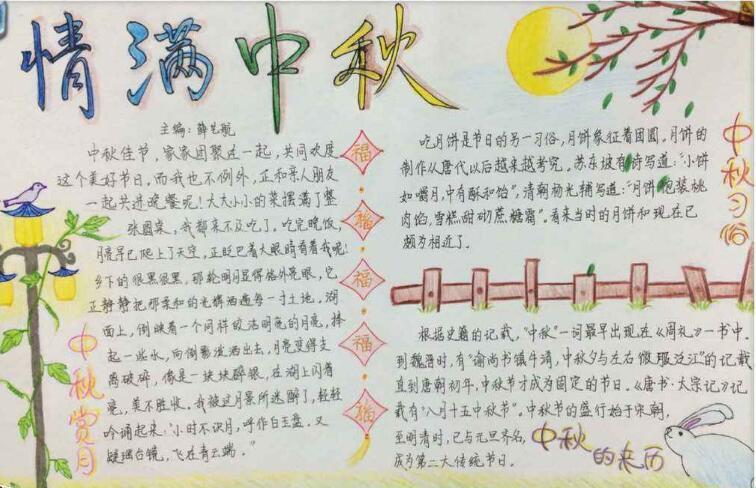 情满中秋
主编：薛艺航
中秋佳节，家家团聚在一起，共同欢度
这个美好节日。而我也不例外，正和家人朋友
一起共进晚餐呢！大大小小的菜摆满了整
张圆桌，我都来不及吃了。吃完晚饭，
月亮早已爬上了天空，正眨巴着大眼睛看着我呢！
乡下的夜黑很黑，那轮明月显得格外亮眼，它
正静静把那柔和的光辉洒遍每一寸土地。湖
面上，倒映着一个同样皎洁明亮的月亮，捧
起一些水，向倒影泼洒出去，月亮变得支
离破碎，像是一块块碎银，在湖上闪着
亮，美不胜收。我被这月景所迷醉了，轻轻
吟诵起来：“小时不识月，呼作白玉盘。又
疑瑶台镜，飞在青云端。”
中秋赏月
福
福
福
福
福
吃月饼是节日的另一习俗，月饼象征着团圆。月饼的
制作从唐代以后越来越考究。苏东坡有诗写道：“小饼
如嚼月，中有酥和饴”，清朝杨光辅写道：“月饼包装桃
肉馅，雪糕甜砌蔗糖霜”。看来当时的月饼和现在已
颇为相近了。
中秋习俗
根据史籍的记载，“中秋”一词最早出现在《周礼》一书中。
到魏晋时，有“谕尚书镇牛渚，中秋夕与左右微服泛江”的记载
直到唐朝初年，中秋节才成为固定的节日。《唐书·太宗记》记
载有“八月十五中秋节”。中秋节的盛行始于宋朝，
至明清时，已与元旦齐名，
成为第二大传统节日。
中秋的来历